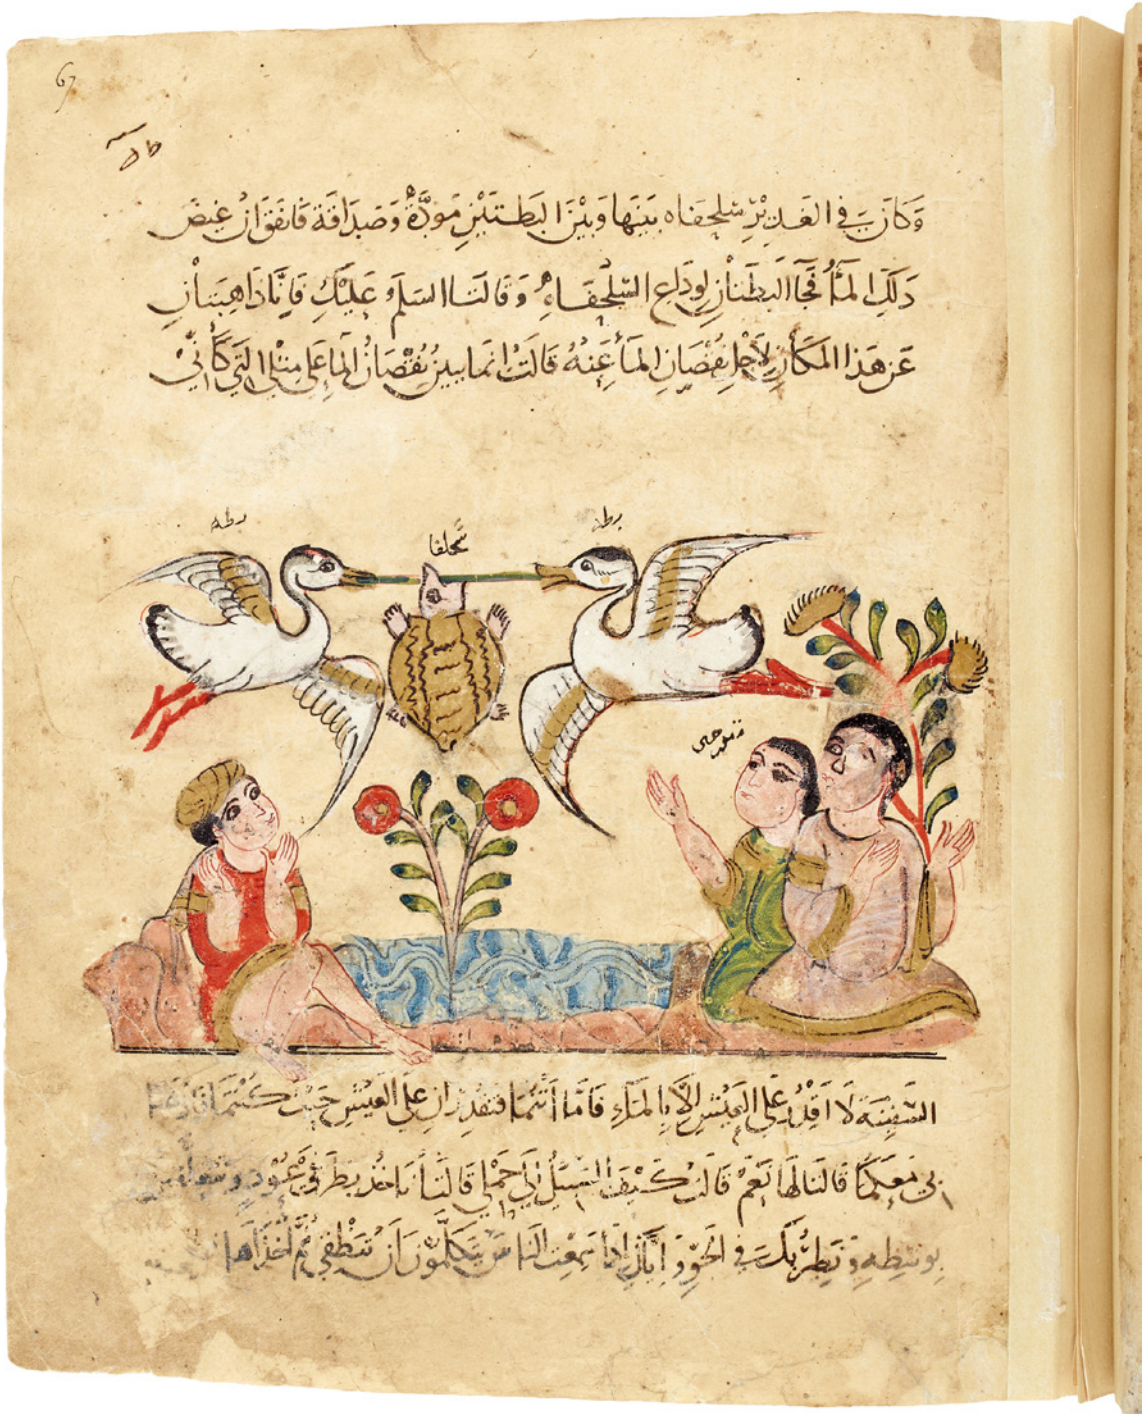 67
وَكَانَ فِي الغَدِيْرِ سُلَحفَاه بَينَهَا وَبَيْنَ البَطَّتَيْنِ مَوَدَّةٌ وَصَدَاقَة فَاتفَقَ انْ غِيضَ
ذَلِكَ المَآءُ فجَآا البَطتَانِ لِوَدَاعِ السُّلَحْفَاهِ وَقَالَتَا السَلَم عَلَيْكِ فَإِنَّنَا ذَاهِبَتانِ
عَن هَذا المَكَانِ لِأَجْلِ نُقْصَانِ المَآءِ عَنهُ قَالَتْ انمَا يبينُ نُقْصَانُ المَا عَلى مِثْلِي التِي كَأَنِّي
بطه
سحلفا
بطه
السَّفِينَة لَا اَقْدِرُ عَلى العَيْشِ اِلَّا بِالمَآءِ فَأَمَّا اَنْتُمَا فتَقْدِرَانِ عَلى العَيْشِ حَيْث كُنْتُمَا
بِي مَعَكُمَا قَالَتَا لَهَا نَعَمْ قَالَت كَيْفَ السَّبِيْلُ اِلَى حَمْلِي قَالَتَا نَاخُذ بِطَرَفَيْ عُوْدٍ
بِوَسَطِهِ وَنَطِيْرُ بكِ فِي الجَوِّ وَاِيَّاكِ اِذَا سَمِعْتِ النَاسَ يَتَكَلَّمُوْنَ اَنْ تَنْطِقِي ثُمَّ اَخَذَاهَا